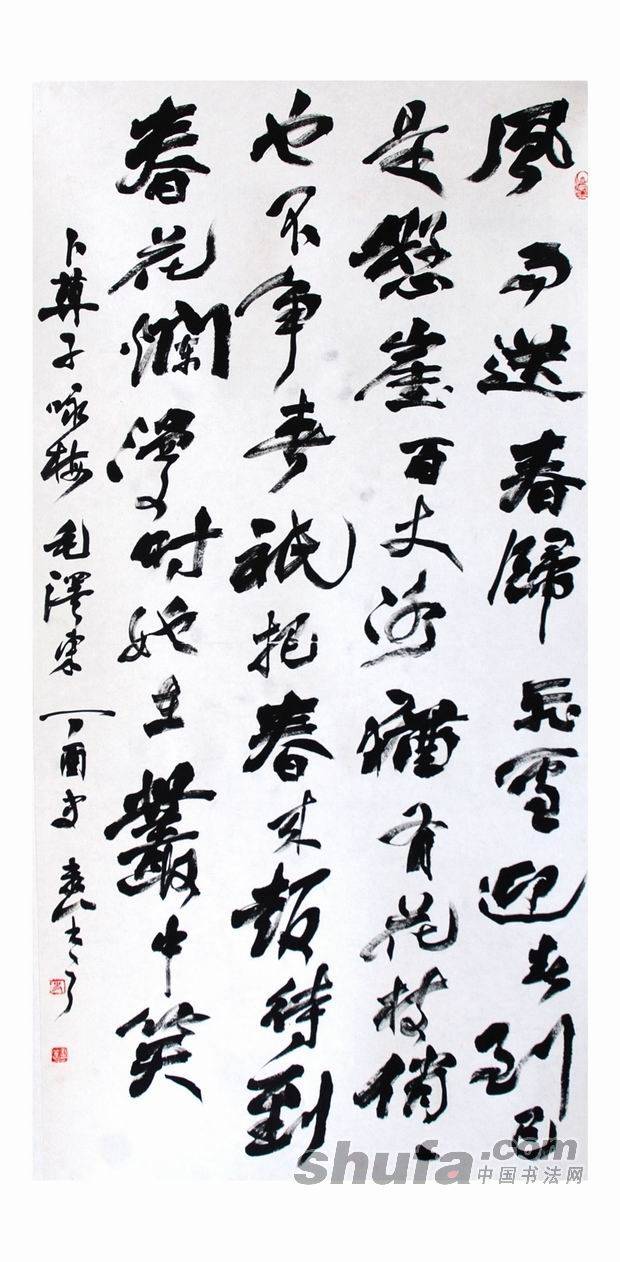 風雨送春歸飛雪迎春到已
是懸崖百丈冰猶有花枝俏、
也不争春祇把春來報待到
春花爛漫時她在叢中笑
卜算子咏梅 毛澤東 丁酉
shufa.com
中国书法网